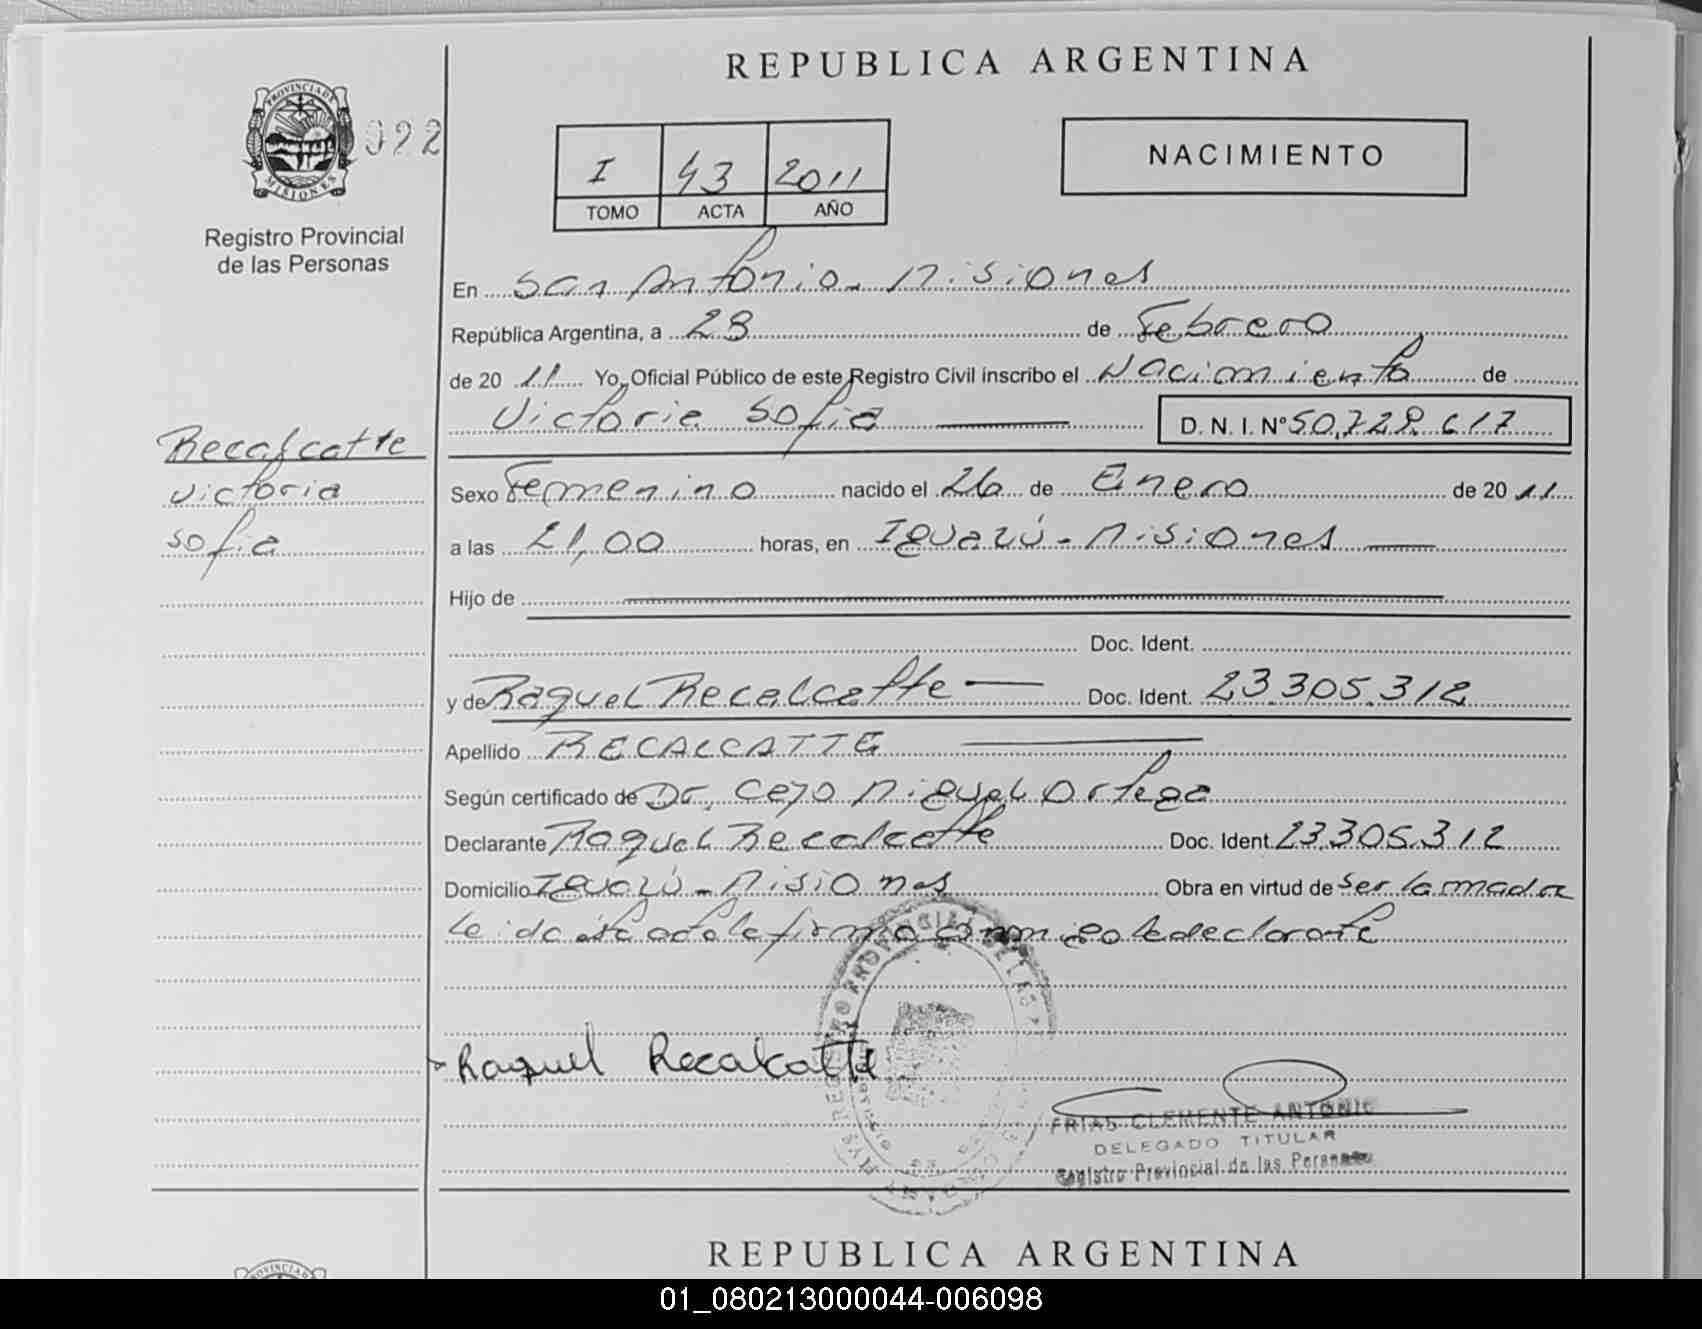 REPUBLICA ARGENTINA
PROVINCIA DE
MISIONES
Registro Provincial
de las Personas
I 43 2011
TOMO ACTA AÑO
NACIMIENTO
En San Antonio - Misiones
República Argentina, a 28 de Febrero
de 20 11 Yo, Oficial Público de este Registro Civil inscribo el Nacimiento de
Victoria Sofia D. N. I. Nº 50.728.617
Recalcatte
Victoria
Sofia
Sexo Femenino nacido el 26 de Enero de 20 11
a las 21,00 horas, en Iguazú - Misiones
Hijo de
Doc. Ident.
y de Raquel Recalcatte Doc. Ident. 23.305.312
Apellido RECALCATTE
Según certificado de Dr. Ceyo Miguel Ortega
Declarante Raquel Recalcatte Doc. Ident. 23.305.312
Domicilio Iguazú - Misiones Obra en virtud de ser la madre
Leida ésta acta la firma conmigo la declarante
Raquel Recalcatte
FRIAS CLEMENTE ANTONIO
DELEGADO TITULAR
Registro Provincial de las Personas
REPUBLICA ARGENTINA
01_080213000044-006098